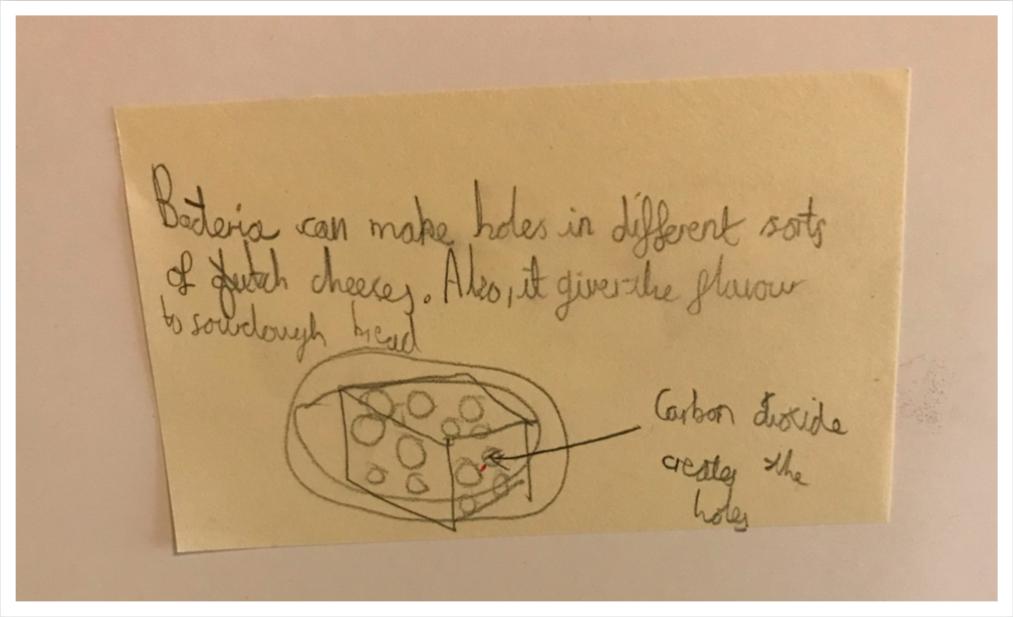 Bacteria can make holes in different sorts
of dutch cheeses. Also, it gives the flavour
to sourdough bread
Carbon dioxide
creates the
holes